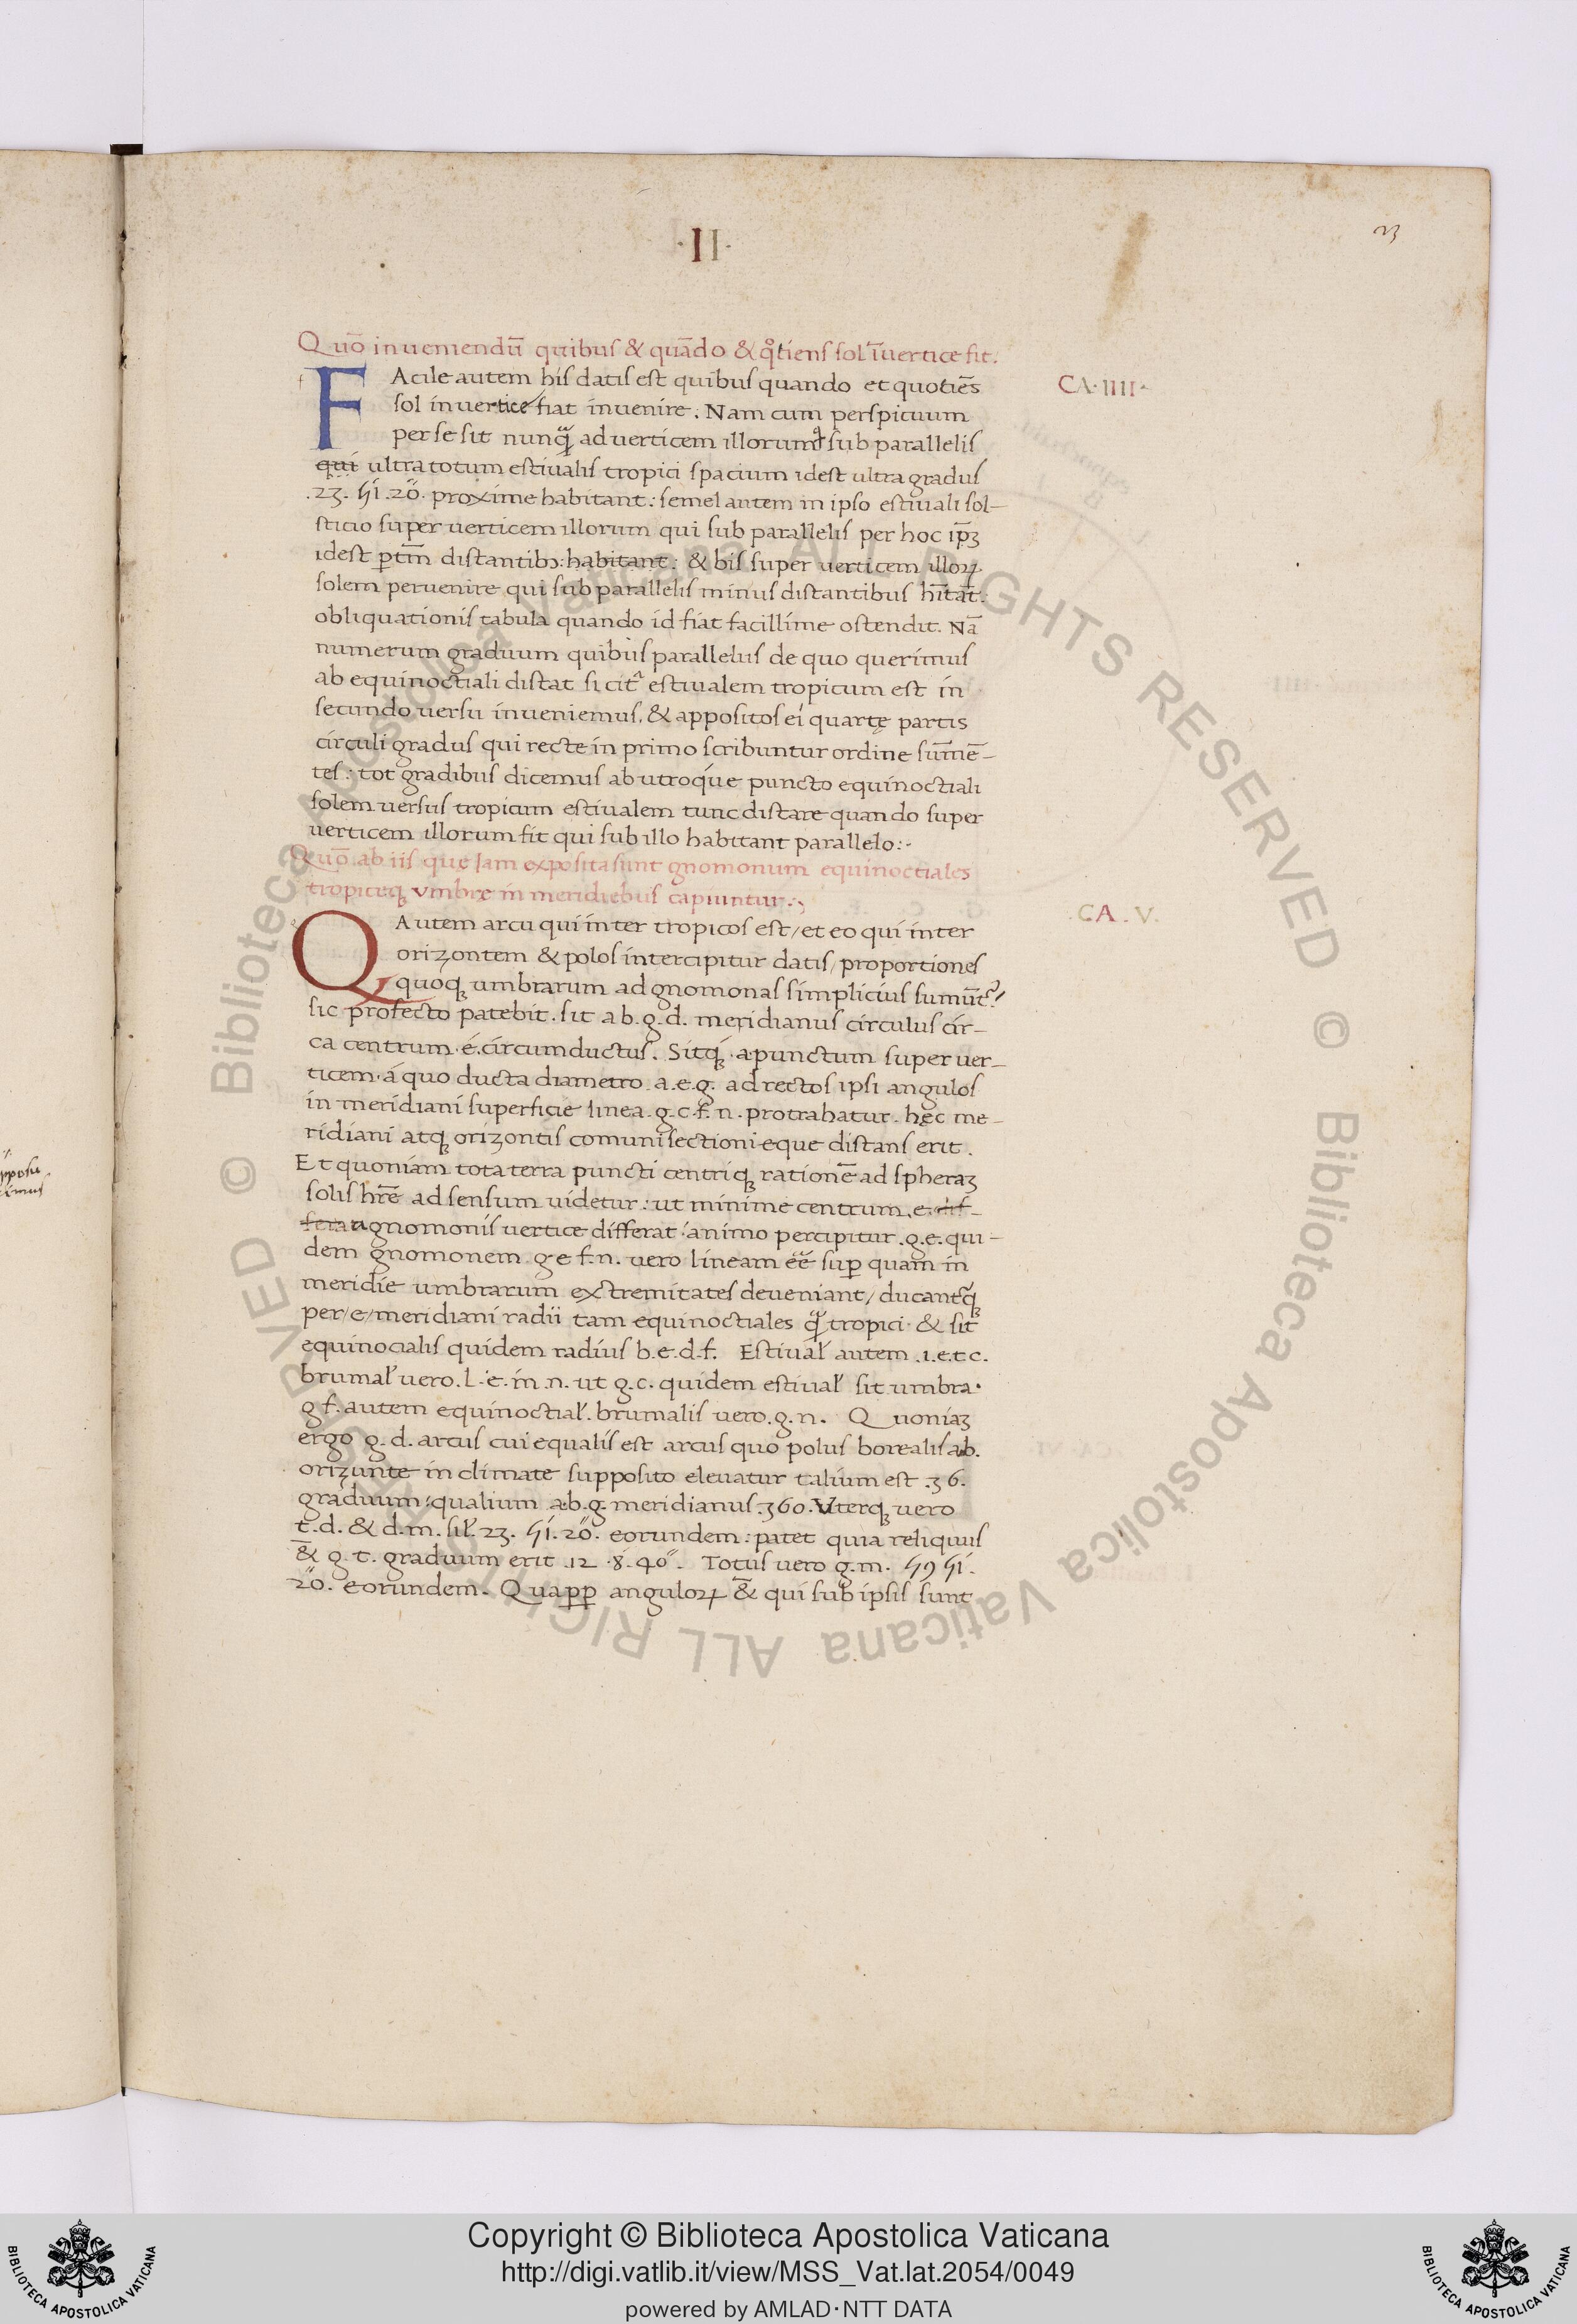 ·II·
23
Quō inueniendū quibus & quādo & qͦtiens sol ī uertice fit.
FAcile autem his datis est quibus quando et quotiēs
CA·IIII·
sol in uertice fiat inuenire. Nam cum perspicuum
per se sit nunq̃ ad uerticem illorum sub parallelis
qui ultra totum estiualis tropici spacium idest ultra gradus
.23. 51́. 20̋. proxime habitant: semel autem in ipso estiuali sol-
sticio super uerticem illorum qui sub parallelis per hoc ip̄ꝫ
idest ptīm distantibꝫ: habitant: & bis super uerticem illoꝝ
solem peruenire qui sub parallelis minus distantibus hītāt:
obliquationis tabula quando id fiat facillime ostendit. Nā
numerum graduum quibus parallelus de quo querimus
ab equinoctiali distat si citͣ estiualem tropicum est in
secundo uersu inueniemus, & appositos ei quartę partis
circuli gradus qui recte in primo scribuntur ordine sum̄ē-
tes: tot gradibus dicemus ab utroque puncto equinoctiali
solem uersus tropicum estiualem tunc distare quando super
uerticem illorum fit qui sub illo habitant parallelo:·
Quō ab iis que Iam exposita sunt gnomonum equinoctiales
tropiceqꝫ vmbrę in meridiebus capiuntur.
CA. V.
QAutem arcu qui inter tropicos est/ et eo qui inter
orizontem & polos intercipitur datis/ proportiones
quoqꝫ umbrarum ad gnomonas simplicius sumūt᷑/
sic profecto patebit. sit a b. g. d. meridianus circulus cir-
ca centrum é. circumductus. Sitqꝫ a punctum super uer-
ticem á quo ducta diametro a. e. g. ad rectos ipsi angulos
in meridiani superficie linea g. c. f. n. protrahatur. hęc me-
ridiani atqꝫ orizontis comuni sectioni eque distans erit.
Et quoniam tota terra puncti centriqꝫ rationē ad spheraꝫ
solis hr̄e ad sensum uidetur: ut minime centrum. e. dif-
ferat a gnomonis uertice differat animo percipitur. g. e. qui-
dem gnomonem g e f. n. uero lineam eē sup̱ quam in
meridie umbrarum extremitates deueniant/ ducant᷑qꝫ
per/e/ meridiani radii tam equinoctiales q̃ tropici. & sit
equinocialis quidem radius b. e. d. f. Estiual̓ autem .i. e. t c.
brumal̓ uero. l. e. m n. ut g. c. quidem estiual̓ sit umbra.
g f. autem equinoctial̓. brumalis uero. g. n. Quoniaꝫ
ergo g. d. arcus cui equalis est arcus quo polus borealis ab.
orizunte in climate supposito eleuatur talium est .36.
graduum: qualium a b. g. meridianus .360. Vterqꝫ uero
t. d. & d. m. sil̓. 23. 51́. 20̋. eorundem: patet quia reliquus
& g. t. graduum erit .12 .8́. 40̋. Totus uero g. m. 59 51́.
20̋. eorundem. Quap̱p̱ anguloꝝ & qui sub ipsis sunt
Copyright © Biblioteca Apostolica Vaticana
http://digi.vatlib.it/view/MSS_Vat.lat.2054/0049
powered by AMLAD·NTT DATA